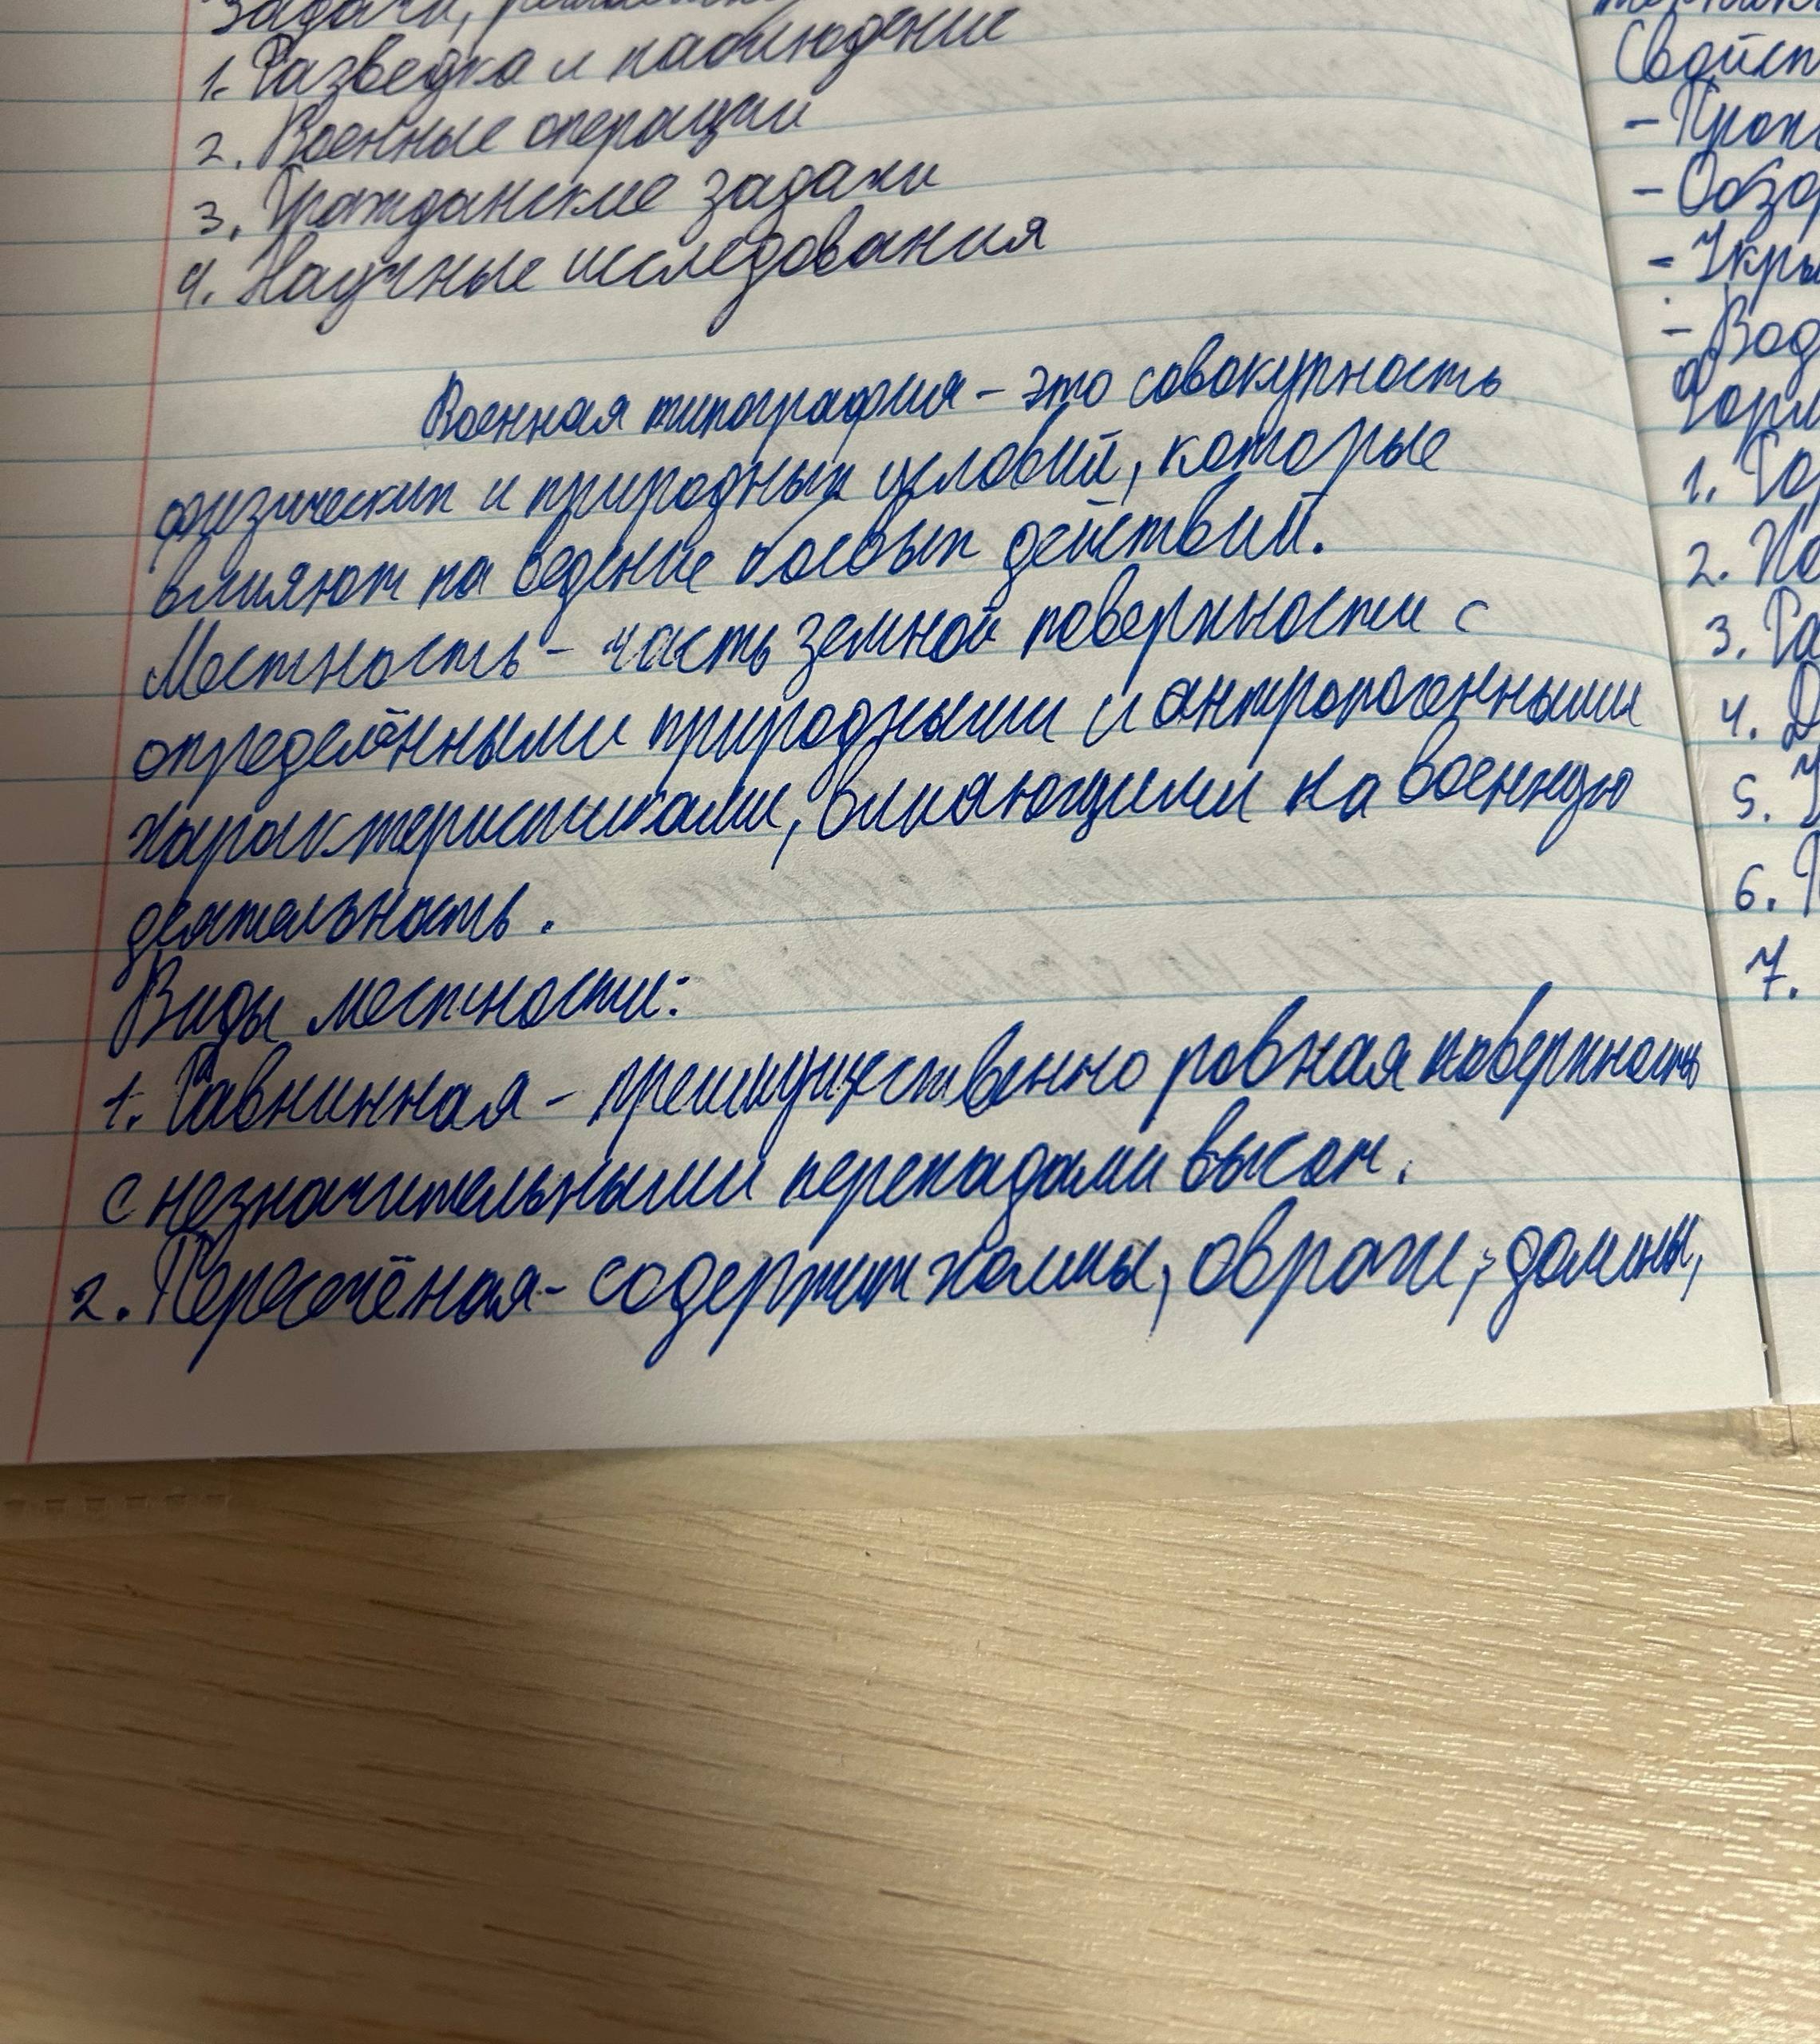 Задачи,
1. Разведка и наблюдение
2. Военные операции
3. Гражданские задачи
4. Научные исследования
Военная типография – это совокупность
физических и природных условий, которые
влияют на ведение боевых действий.
Местность – часть земной поверхности с
определёнными природными и антропогенными
характеристиками, влияющими на военную
деятельность.
Виды местности:
1. Равнинная – преимущественно ровная поверхность
с незначительными перепадами высот.
2. Пересечёная – содержит холмы, овраги, долины,
Свойст
- Прох
- Обзор
- Укры
- Вод
Форм
1.
2.
3.
4.
5.
6.
7.